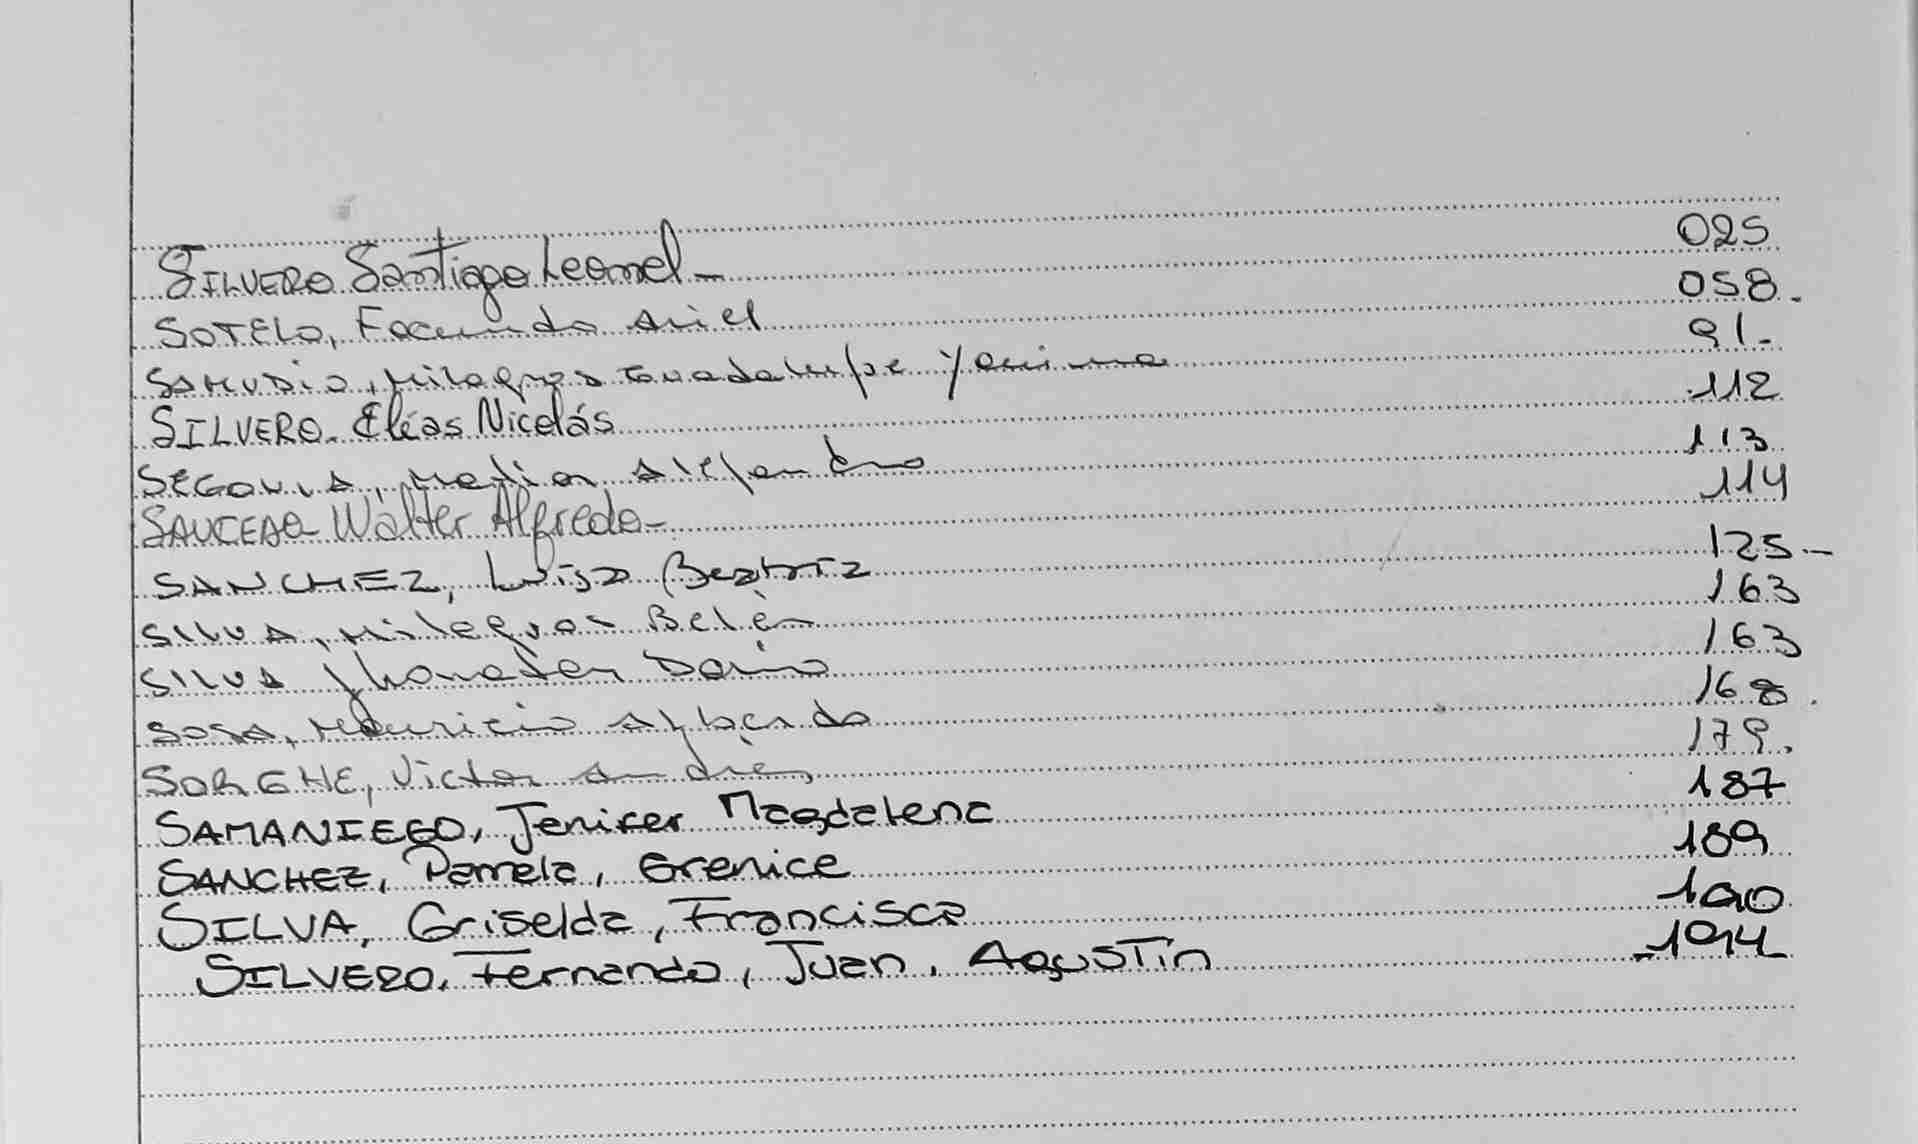 SILVERO Santiago Leonel - 025
SOTELO, Facundo Ariel 058.
SAMUDIO, Milagros Guadalupe Yanina 91.-
SILVERO. Elías Nicolás 112
SEGOVIA, Alejandro 113
SAUCEDO Walter Alfredo - 114
SANCHEZ, Luisa Beatriz 125-
SILVA, Milagros Belén 163
SILVA Jhonatan Dario 163
SOSA, Mauricio 168.
SORGHE, Victor Andrés 179.
SAMANIEGO, Jenifer Magdalena 187
SANCHEZ, Pamela, Grenice 189
SILVA, Griselda, Francisca 190
SILVERO, Fernando, Juan, Agustín 194